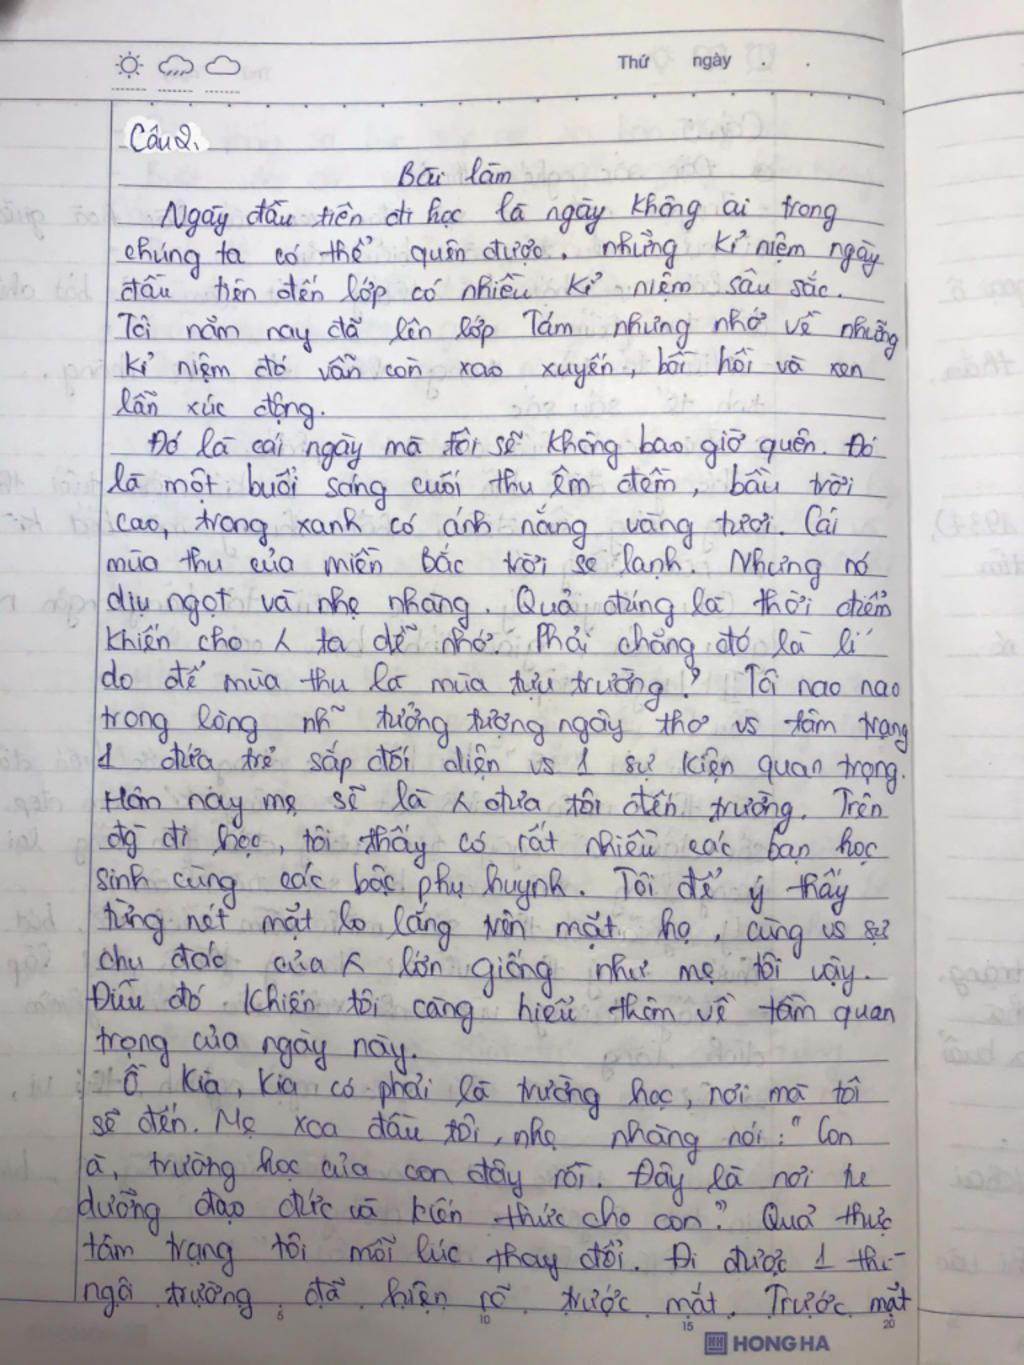 Thứ ngày
Câu 2.
Bài làm
Ngày đầu tiên đi học là ngày không ai trong
chúng ta có thể quên được. những kỉ niệm ngày
đầu tiên đến lớp có nhiều kỉ niệm sâu sắc.
Tôi năm nay đã lên lớp Tám nhưng nhớ về những
kỉ niệm đó vẫn còn xao xuyến, bồi hồi và xen
lẫn xúc động.
Đó là cái ngày mà tôi sẽ không bao giờ quên. Đó
là một buổi sáng cuối thu êm đềm, bầu trời
cao, trong xanh có ánh nắng vàng tươi. Cái
mùa thu của miền Bắc trời se lạnh. Nhưng nó
dịu ngọt và nhẹ nhàng. Quả đúng là thời điểm
khiến cho ta dễ nhớ. Phải chăng đó là lí
do để mùa thu là mùa tựu trường? Tôi nao nao
trong lòng nh~ tưởng tượng ngây thơ vs tâm trạng
1 đứa trẻ sắp đối diện vs 1 sự kiện quan trọng.
Hôm nay mẹ sẽ là đưa tôi đến trường. Trên
đg đi học, tôi thấy có rất nhiều các bạn học
sinh cùng các bậc phụ huynh. Tôi để ý thấy
từng nét mặt lo lắng trên mặt họ, cùng vs sự
chu đáo của lớn giống như mẹ tôi vậy.
Điều đó khiến tôi càng hiểu thêm về tầm quan
trọng của ngày này.
Ồ kia, kia có phải là trường học, nơi mà tôi
sẽ đến. Mẹ xoa đầu tôi, nhẹ nhàng nói: "Con
à, trường học của con đây rồi. Đây là nơi tu
dưỡng đạo đức và kiến thức cho con." Quả thực
tâm trạng tôi mỗi lúc thay đổi. Đi được 1 thì
ngôi trường đã hiện rõ trước mắt. Trước mắt
5 10 15 20
HONG HA